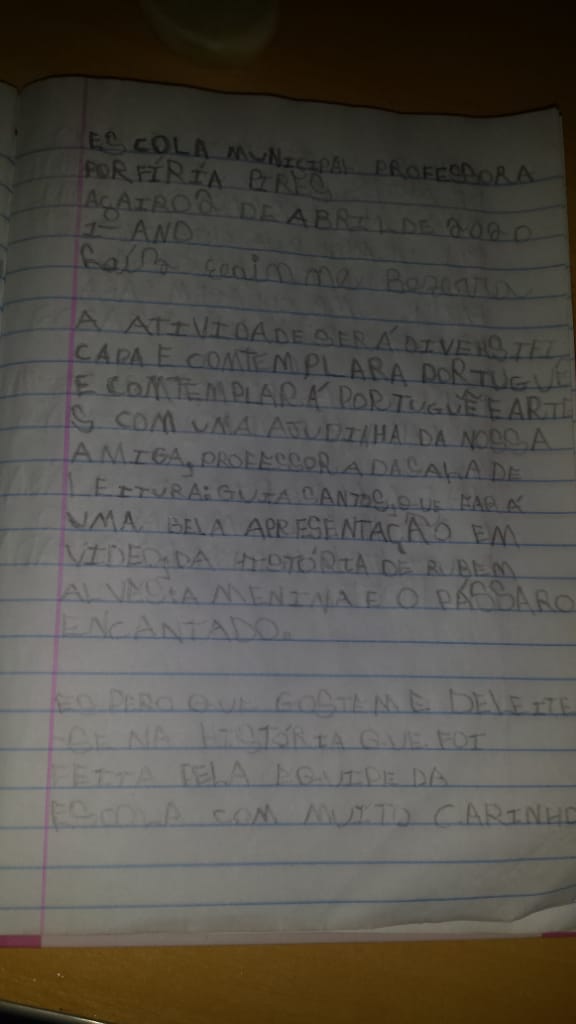 ESCOLA MUNICIPAL PROFESSORA
PORFÍRÍA PIRES
DE ABRIL DE 2020
1- ANO
A ATIVIDADE SERÁ DIVERSTEI
CADA E COMTEMPLARA PORTUGUÊ
E COMTEMPLARÁ PORTUGUÊ E ARTE
S COM UMA AJUDINHA DA NOSSA
AMIGA, PROFESSORA DA SALA DE
LEITURA: GUIA SANTOS, QUE FARÁ
UMA BELA APRESENTAÇÃO EM
VIDEO, DA HISTÓRIA DE RUBEM
ALVES: A MENINA E O PÁSSARO
ENCANTADO.
ESPERO QUE GOSTEM E DELEITE
-SE NA HISTÓRIA QUE FOI
FEITA PELA EQUIPE DA
ESCOLA COM MUITO CARINHO